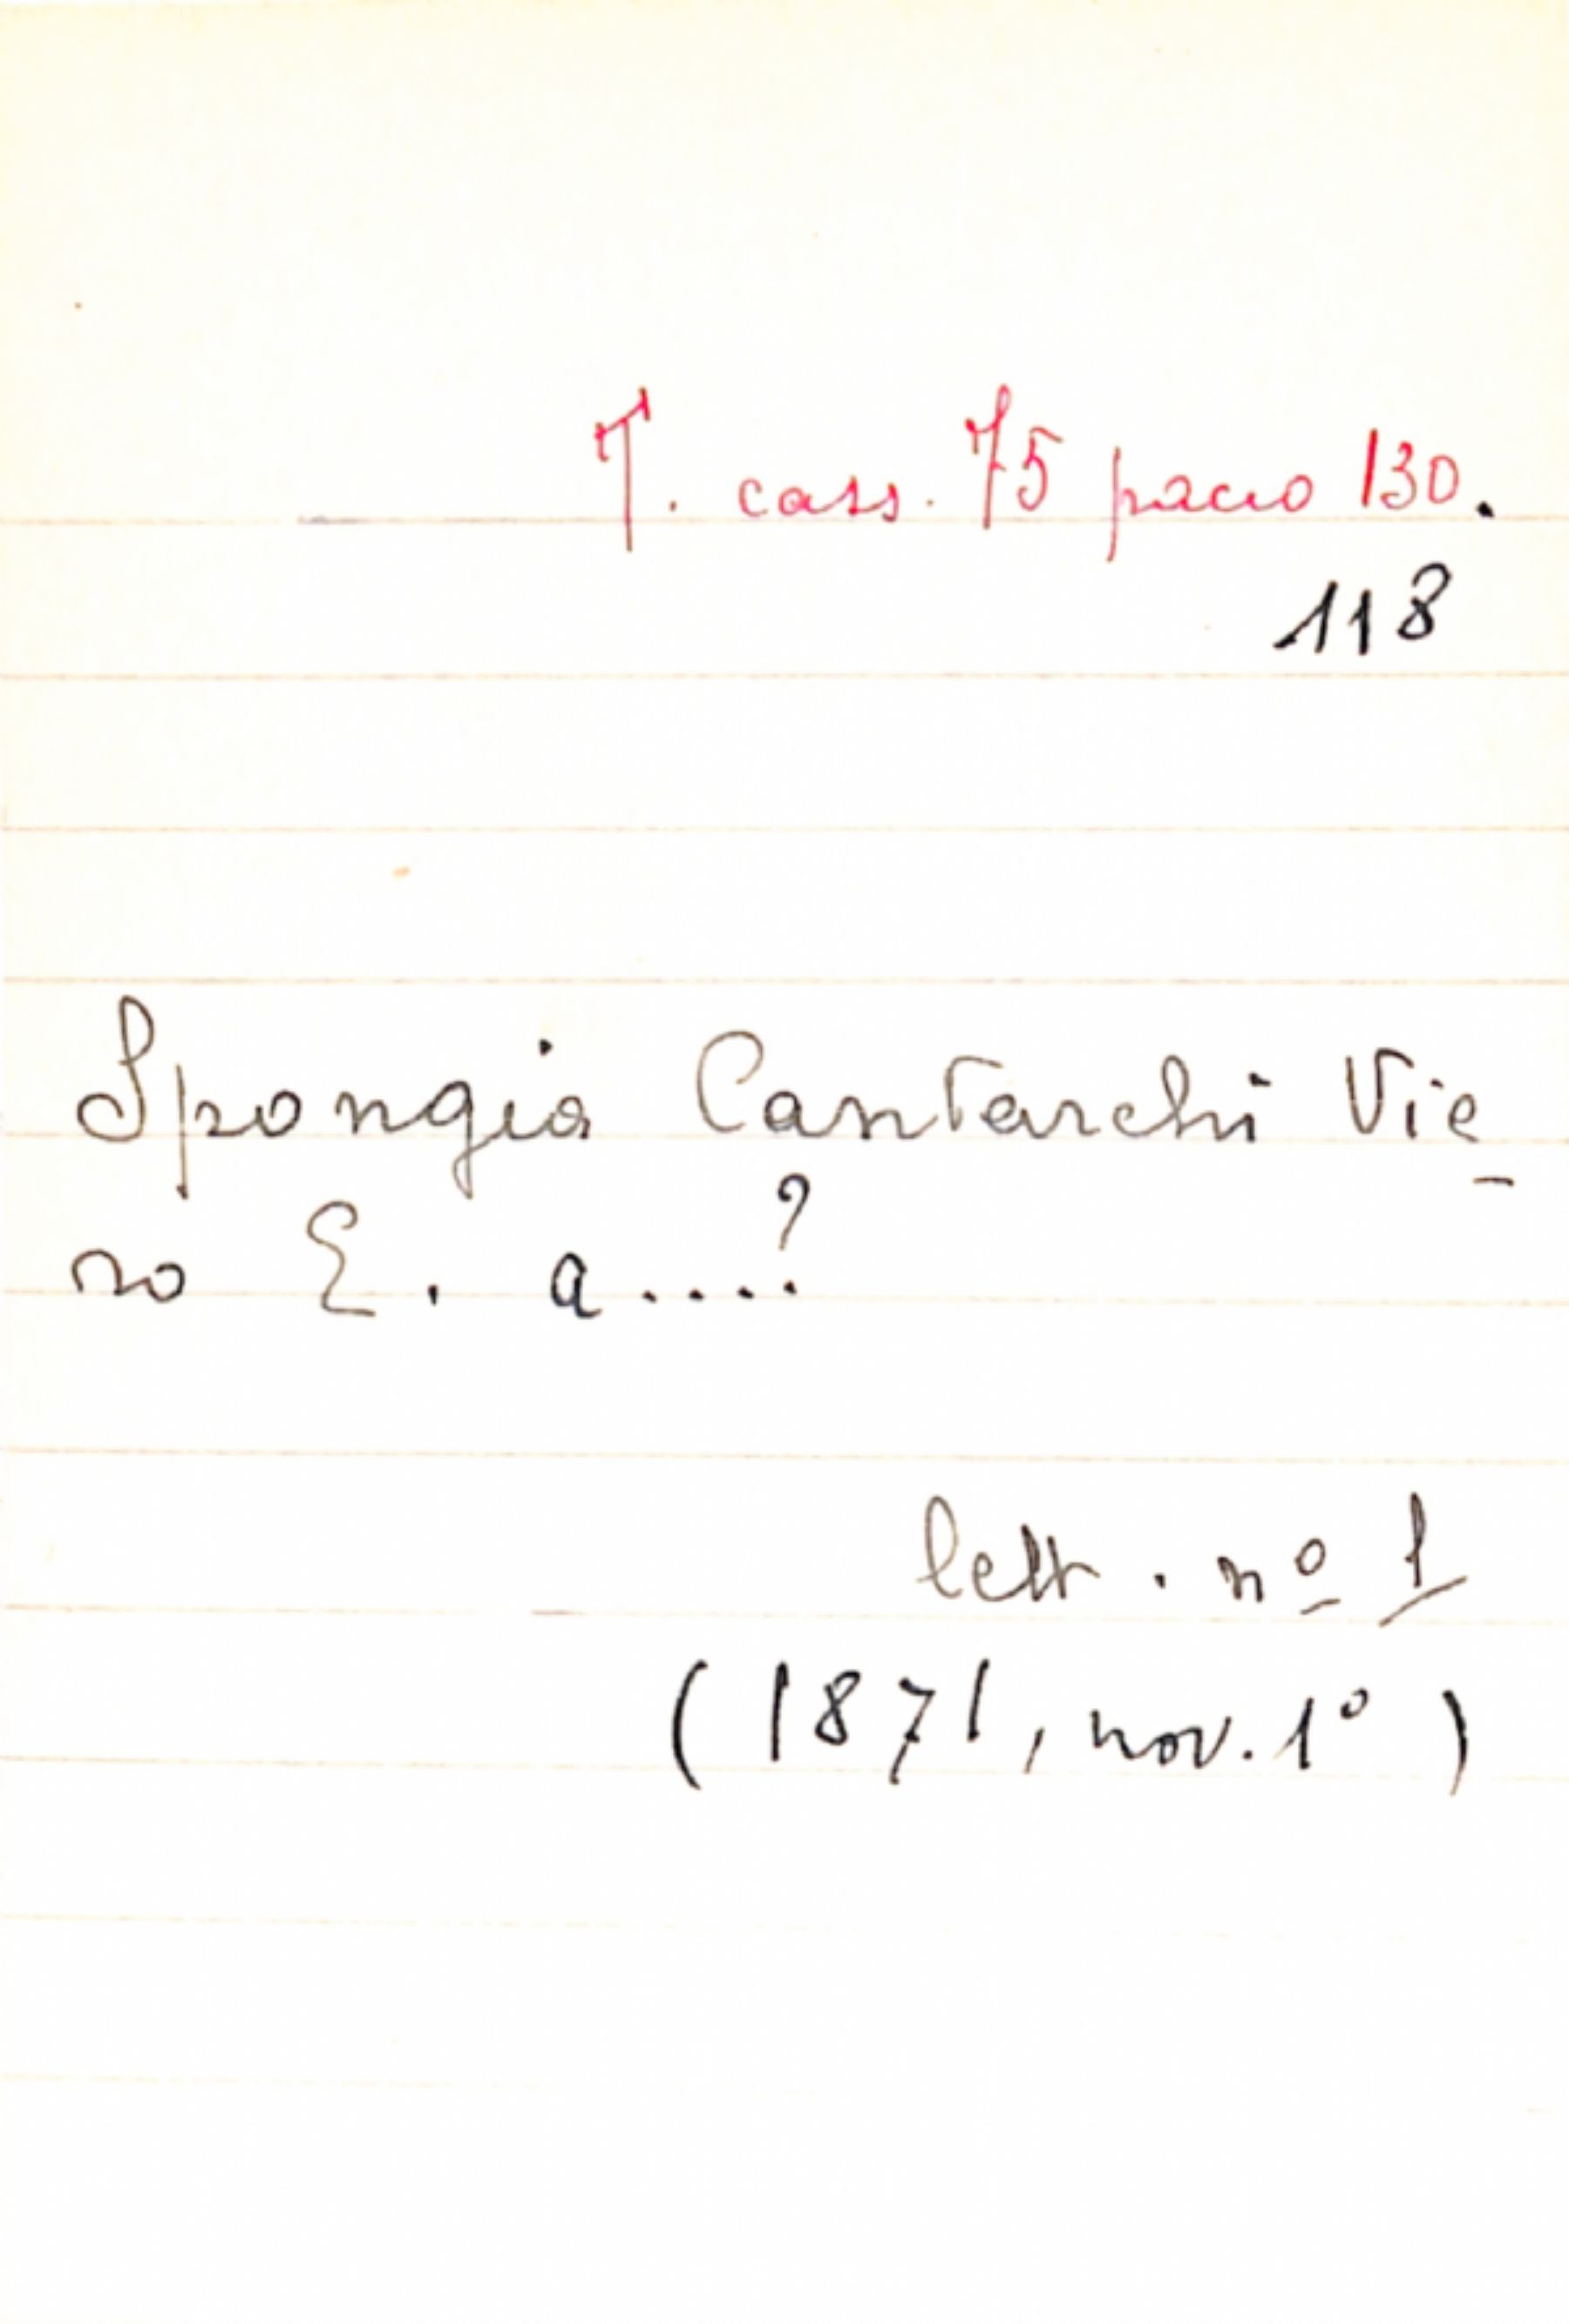 T. cass. 75 pacco 130.
118
Spongia Cantarchi Vie-
ro E. a....?
lett. nº 1
(1871, nov. 1º)